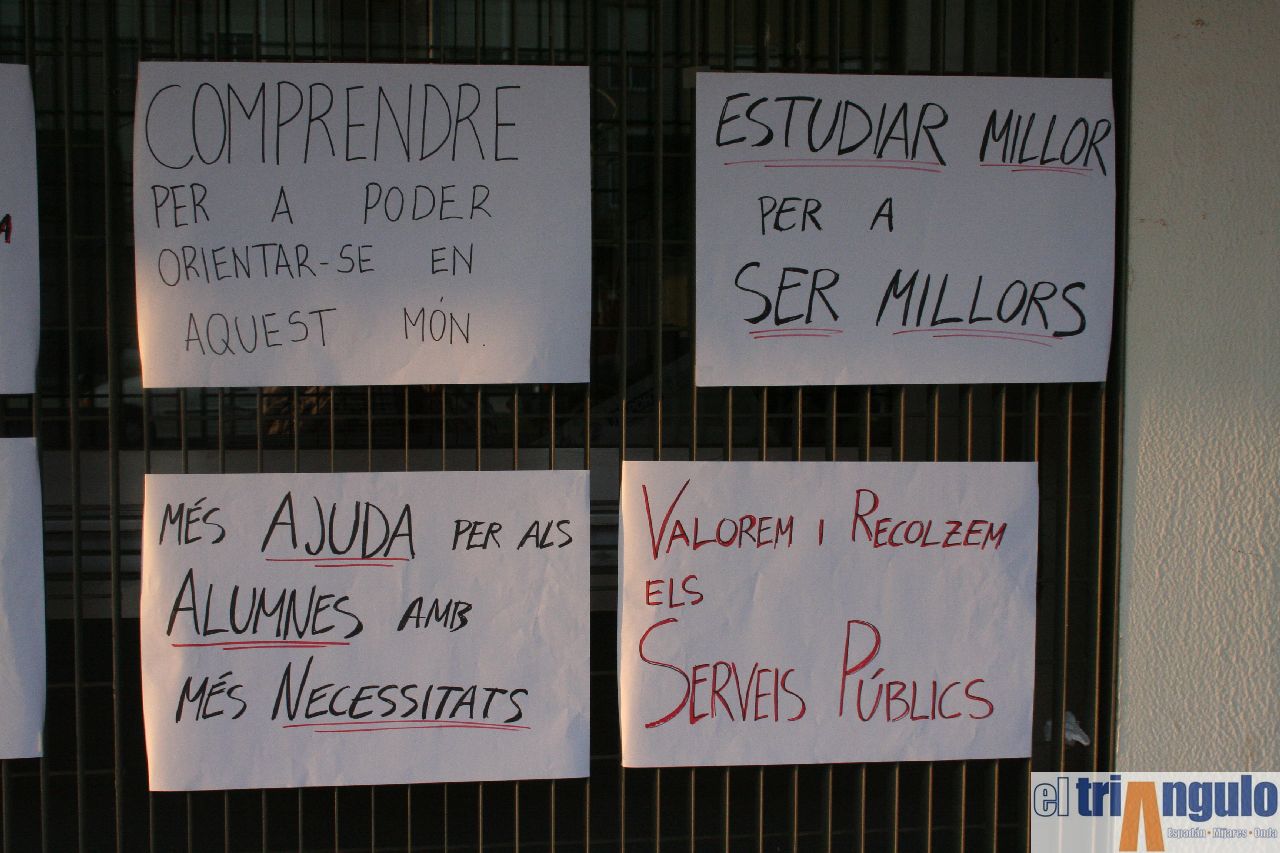 COMPRENDRE
PER A PODER
ORIENTAR-SE EN
AQUEST MÓN.
ESTUDIAR MILLOR
PER A
SER MILLORS
MÉS AJUDA PER ALS
ALUMNES AMB
MÉS NECESSITATS
VALOREM I RECOLZEM
ELS
SERVEIS PÚBLICS
el triangulo
Espadán • Mijares • Onda